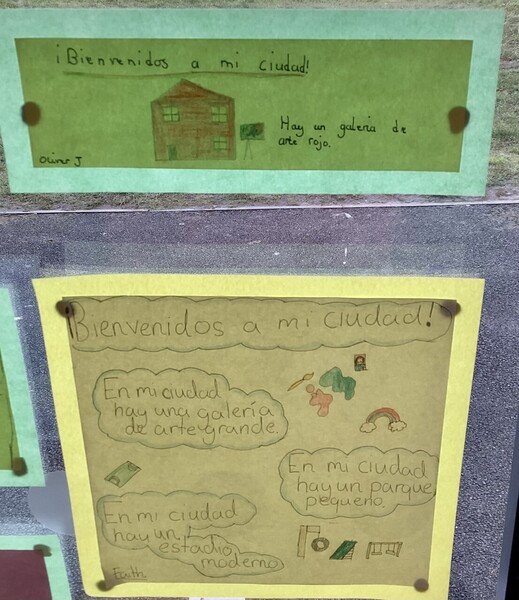 ¡Bienvenidos a mi ciudad!
Hay un galeria de
arte rojo.
Oliver J
¡Bienvenidos a mi ciudad!
En mi ciudad
hay una galería
de arte grande.
En mi ciudad
hay un parque
pequeño.
En mi ciudad
hay un
estadio
moderno
Faith